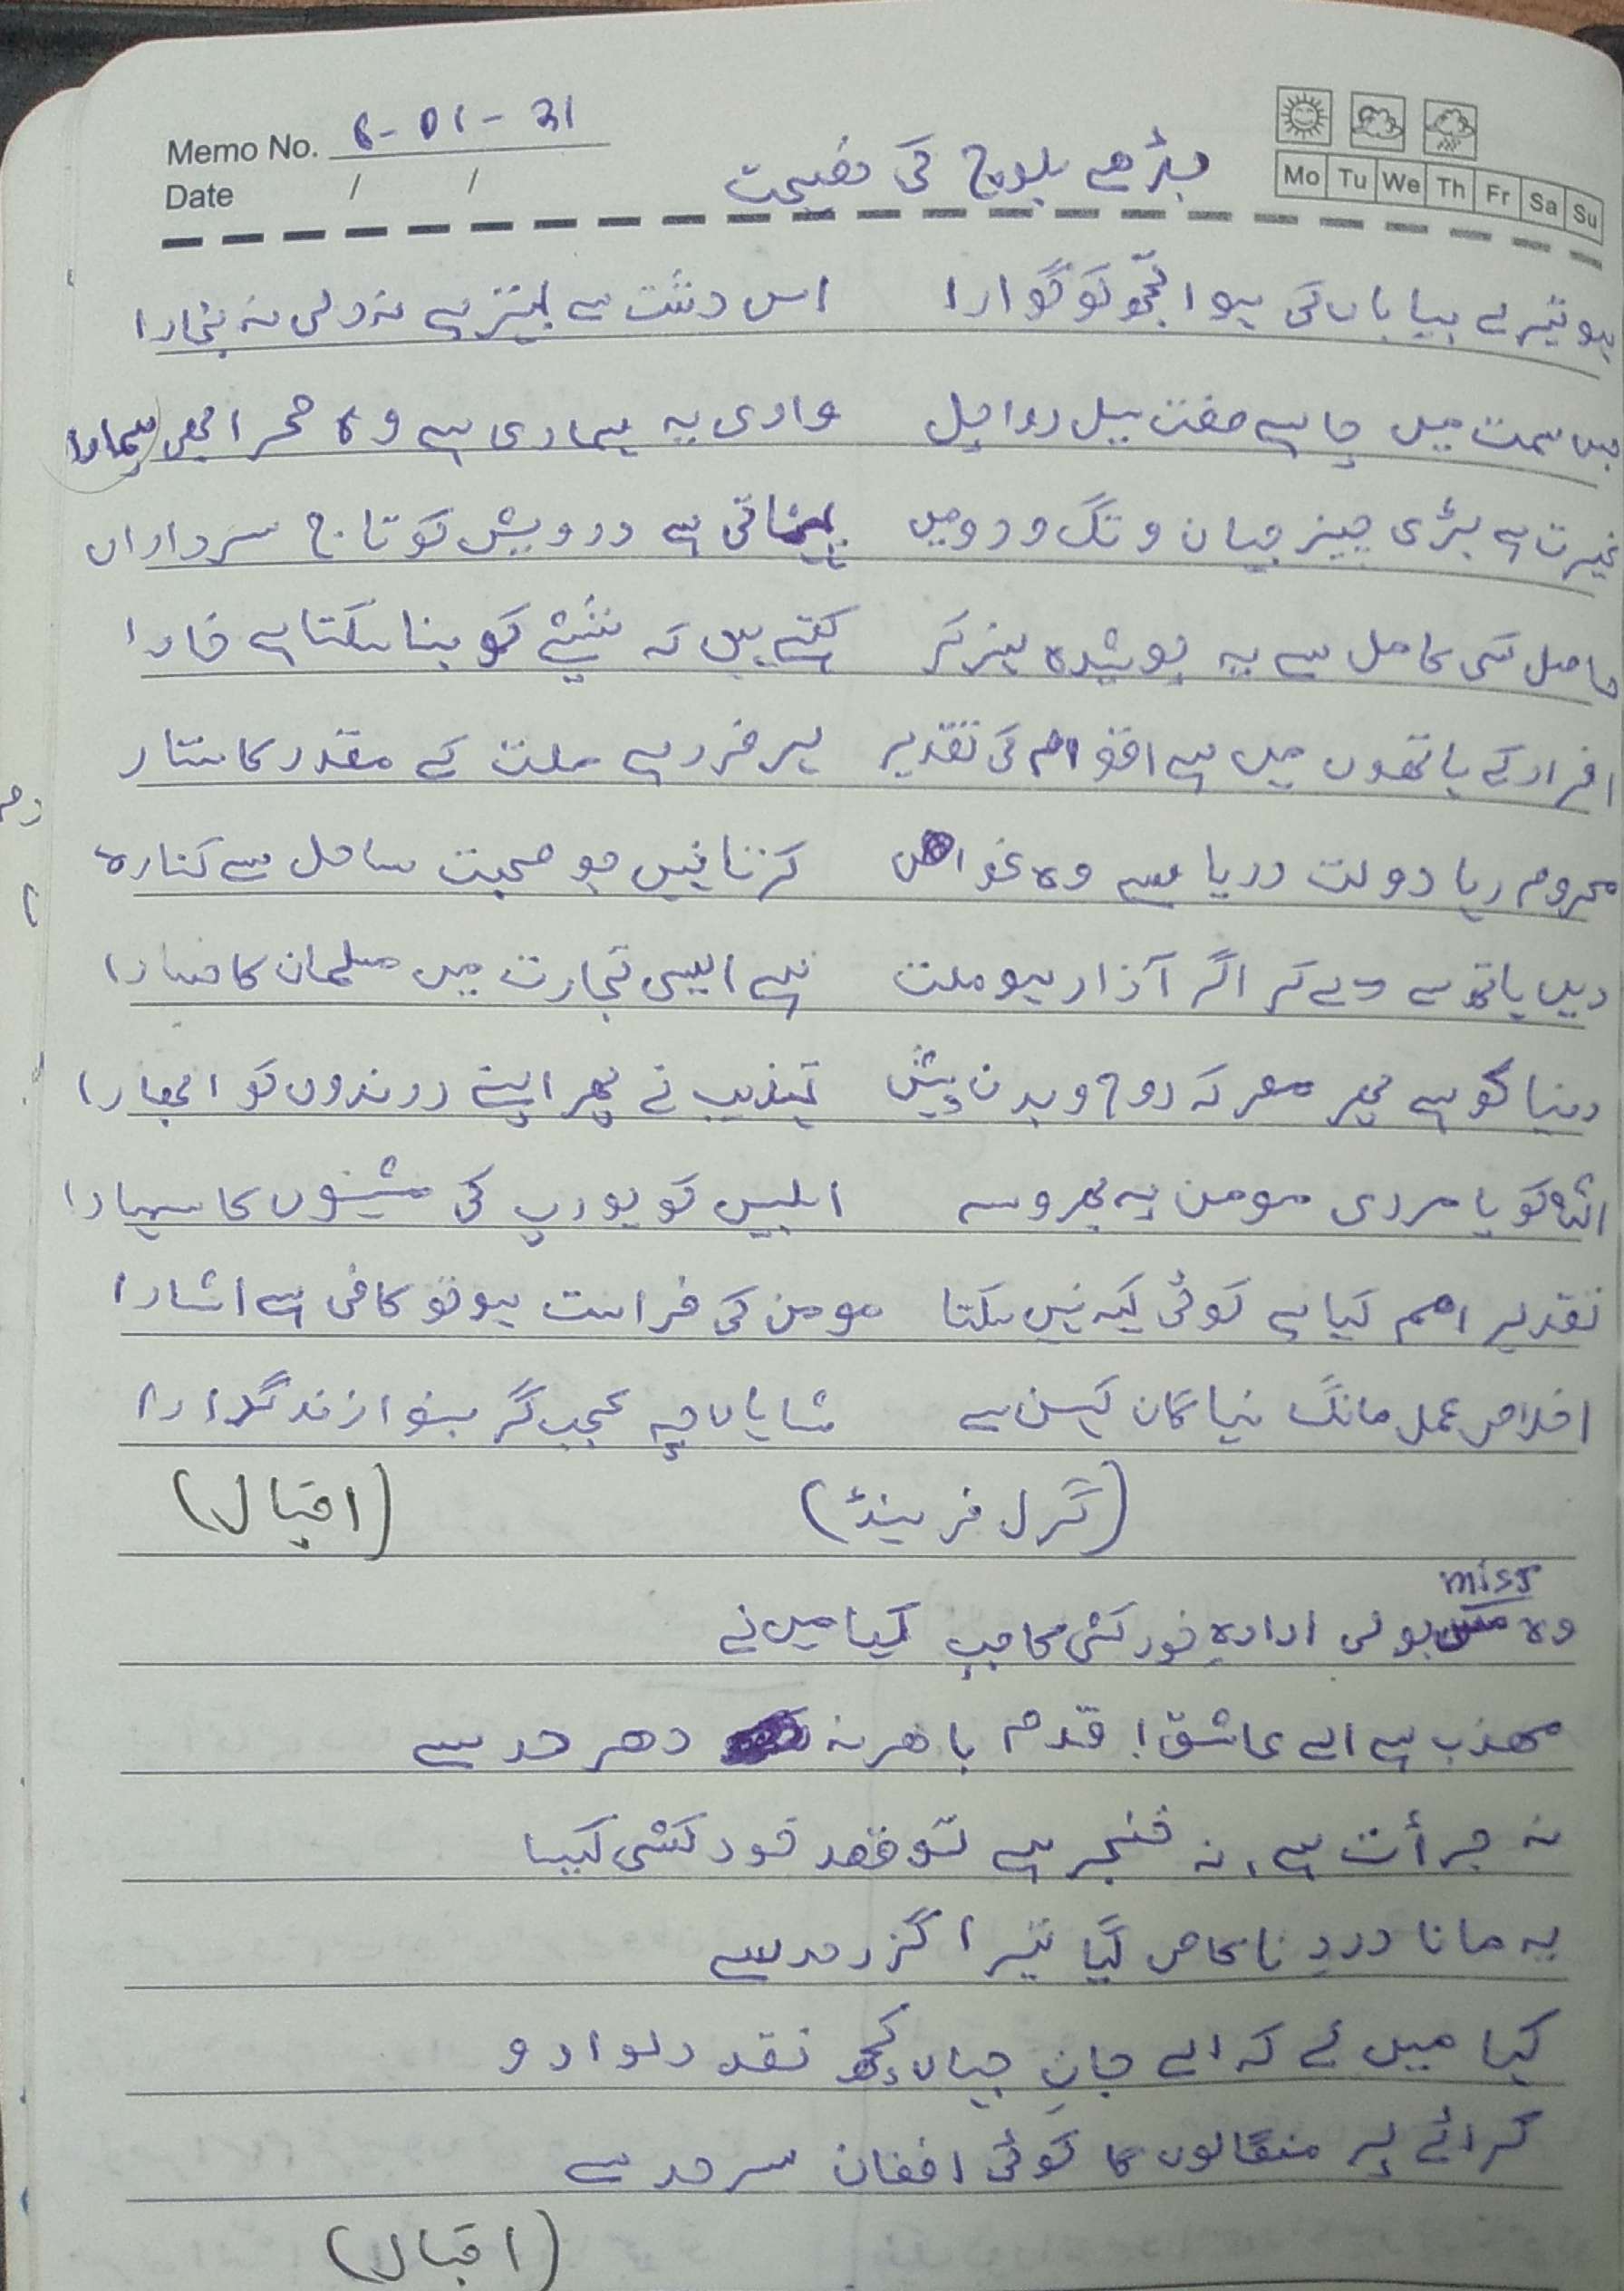 Memo No. 6-01-31
Date / /
Mo Tu We Th Fr Sa Su
بڈھے بلوچ کی نصیحت
ہو تیرے بیاباں کی ہوا تجھ کو گوارا اس دشت سے بہتر ہے نہ دلی نہ بخارا
جس سمت میں چاہے صفت سیل رواں چل وادی یہ ہماری ہے وہ صحرا بھی ہمارا
غیرت ہے بڑی چیز جہان و تگ و دو میں پہناتی ہے درویش کو تاج سرداراں
حاصل کسی کامل سے یہ پوشیدہ ہنر کر کہتے ہیں کہ شیشے کو بنا سکتا ہے خارا
افراد کے ہاتھوں میں ہے اقوام کی تقدیر ہر فرد ہے ملت کے مقدر کا ستار
محروم رہا دولت دریا سے وہ غواص کرتا نہیں جو صحبت ساحل سے کنارہ
دیں ہاتھ سے دے کر اگر آزاد ہو ملت ہے ایسی تجارت میں مسلمان کا خسارا
دنیا کو ہے پھر معرکہ روح و بدن پیش تہذیب نے پھر اپنے درندوں کو ابھارا
اللہ کو پامردی مومن پہ بھروسہ ابلیس کو یورپ کی مشینوں کا سہارا
تقدیر امم کیا ہے کوئی کہہ نہیں سکتا مومن کی فراست ہو تو کافی ہے اشارا
اخلاص عمل مانگ نیاگان کہن سے شاہاں چہ عجب گر بنوازند گدا را
(گرل فرینڈ) (اقبال)
miss
وہ مس بولی ارادہِ خودکشی کا جب کیا میں نے
مہذب ہے اے عاشق! قدم باھر نہ دھر حد سے
نہ جرأت ہے، نہ خنجر ہے تو قصد خودکشی کیسا
یہ مانا دردِ ناکامی گیا تیرا گزر حد سے
کہا میں نے کہ اے جانِ جہاں کچھ نقد دلوا دو
کرائے پر منگالوں گا کوئی افغان سرحد سے
(اقبال)